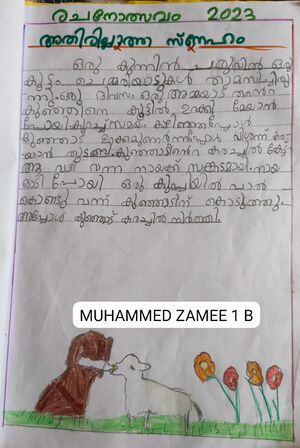 രചനോത്സവം 2023
അതിരില്ലാത്ത സ്നേഹം
ഒരു കുന്നിൻ ചരുവിൽ ഒരു
കൂട്ടം ചെമ്മരിയാടുകൾ താമസിച്ചിരു
ന്നു. ഒരു ദിവസം ഒരു അമ്മയാട് തന്റെ
കുഞ്ഞിനെ കൂട്ടിൽ ഉറക്കി മേയാൻ
പോയി കുറച്ച് സമയം കഴിഞ്ഞപ്പോൾ
കുഞ്ഞാട് ഉറക്കമുണർന്നപ്പോൾ വിശന്ന് കര
യാൻ തുടങ്ങി. കുഞ്ഞാടിന്റെ കരച്ചിൽ കേട്ട
ആ വഴി വന്ന നായക്ക് സങ്കടമായി. നായ
ഓടി പോയി ഒരു കുപ്പിയിൽ പാൽ
കൊണ്ടു വന്ന് കുഞ്ഞാടിന് കൊടുത്തു.
അപ്പോൾ കുഞ്ഞാട് കരച്ചിൽ നിർത്തി.
MUHAMMED ZAMEE 1 B